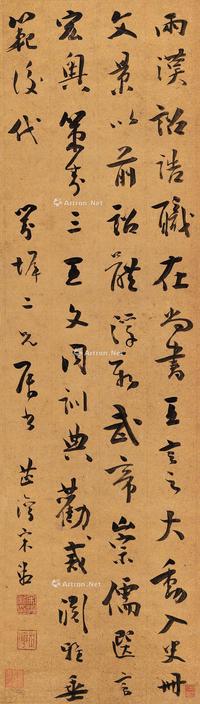 兩漢詔誥職在尚書王言之大動入史冊
文景以前詔體浮新武帝崇儒選言
宏奧策封三王文同訓典勸戒淵雅垂
範後代 墀二兄屬書 芷灣宋湘
Artron.Net
Artron.Net
Artron.Net